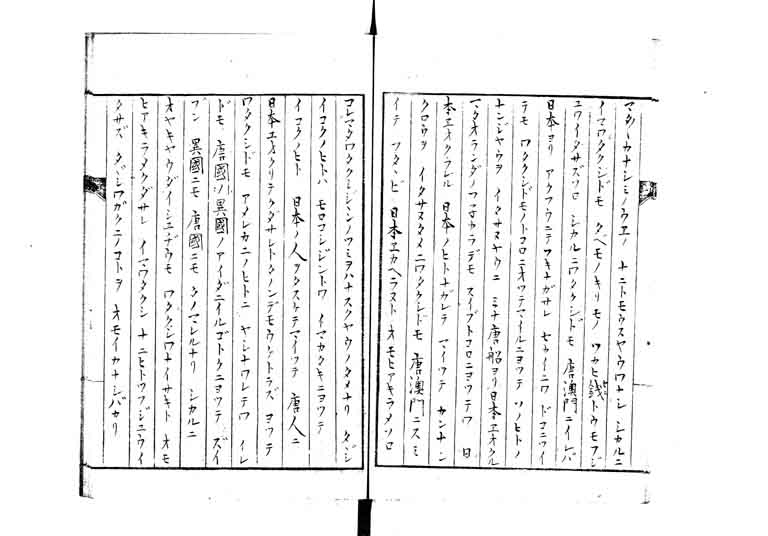 マターカナシミノウエノ ナニトモウスヤウワナシ シカルニ
イマワタクシドモ タベモノキリモノ ツカヒ銭トウモフジ
ユウイタサズソロ シカルニワタクシドモ 唐澳門ニイレバ
日本ヨリ アクフウニテフキナガサレ セカイニワ ドコニツイ
テモ ワタクシドモノトコロニオクツテマイルニヨツテ ソノヒトノ
ナンジヤウヲ イタサスヤウニ ミナ唐船ヨリ日本エオクル
マタオランダノフ子カラデモ スイブトコロニヨツテワ 日
本エオクラレル 日本ノヒトナガレテ マイツテ カンナン
クロウヲ イタサスタメニワタクシドモ 唐澳門ニスミ
イテ フタヽビ 日本エカヘラズト オモヒアキラメソロ
コレマタワタクシジマンノフミヲハナスクヤウノタメナリ タダシ
イコクノヒトハ モロコシジントワ イマカタキニヨツテ
イコクノヒト 日本ノ人ヲタスケテマイツテ 唐人ニ
日本エオクリテクダサレトタノンデモウケトラズ ヨツテ
ワタクシドモ アメレカニノヒトニ ヤシナワレテワ イレ
ドモ 唐國ソノ異國ノアイダニイルゴトクニヨツテ ズイ
ブン 異國ニモ 唐國ニモ タノマレルナリ シカルニ
オヤキヤウダイシユヂウモ ワタクシワナイサキト オモ
ヒアキラメクダサレ イマワタクシ ナニヒトツフジユウイ
タサズ タダシワガクニノコトヲ オモイカナシバカリ